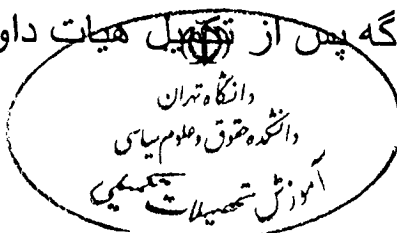 گه پس از تشکیل هیات داو
دانشگاه تهران
دانشکده حقوق و علوم سیاسی
آموزش تحصیلات تکمیلی